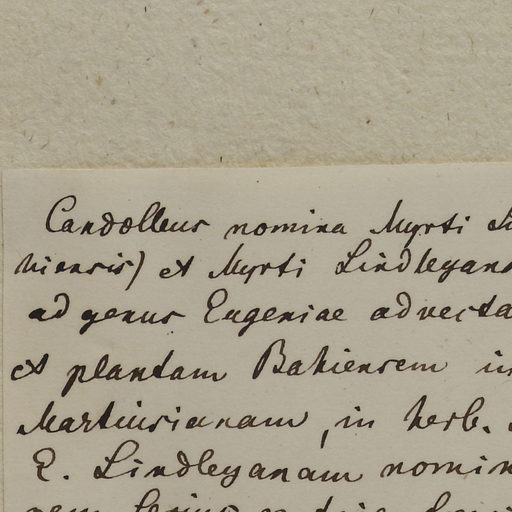 Candolleus nomina Myrti
hiensis) et Myrti Lindleyana
ad genus Eugeniae advecta
et plantam Bahiensem in
Martiusianam, in herb.
E. Lindleyanam nomin